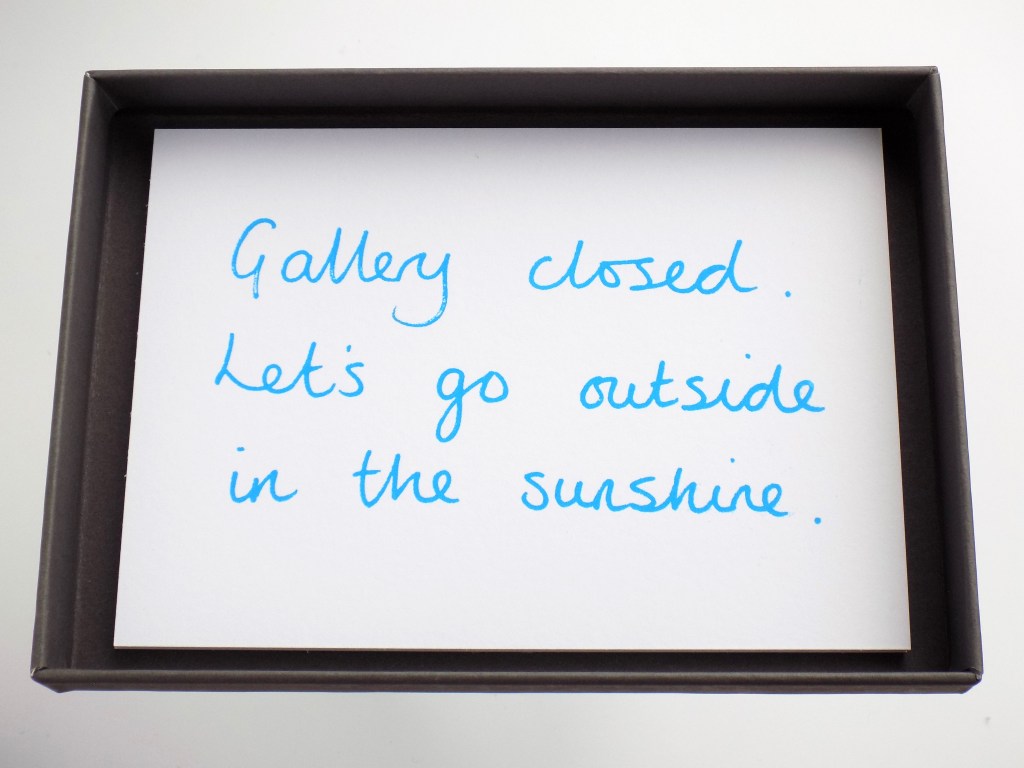 Gallery closed.
Let's go outside
in the sunshine.